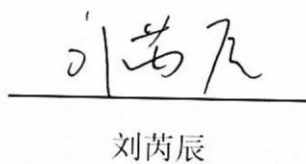 刘芮辰
刘芮辰